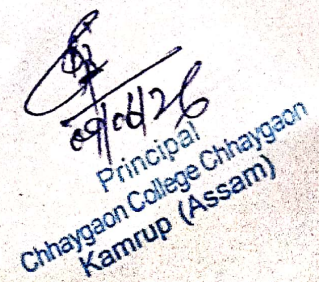 Principal
Chhaygaon College Chhaygaon
Kamrup (Assam)